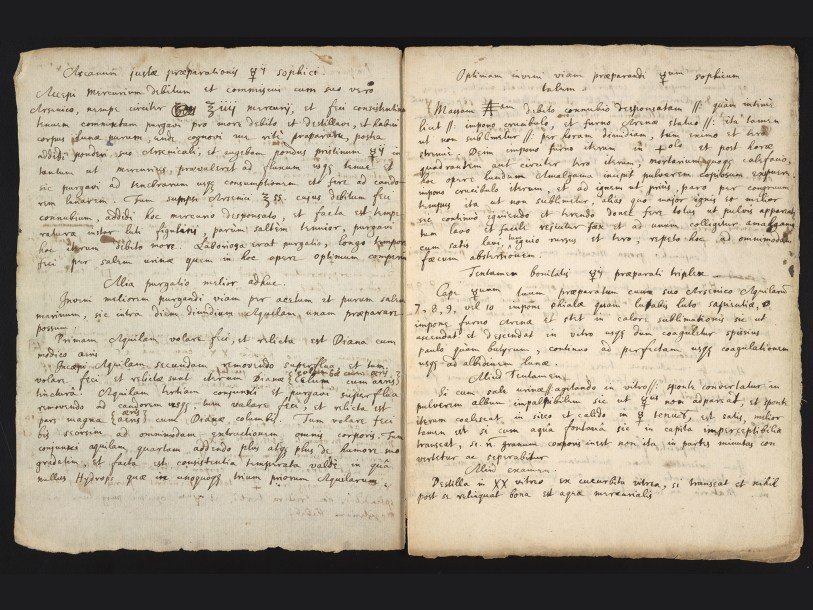 Arcanum justæ præparationis ☿ij sophici.
Accepi mercurium debitum et commiscui cum suo vero
Arsenico, nempe circiter ʒ iiij mercurij, et feci consistentiam
tenuem commixtam purgavi pro more debito et destillavi, et habui
corpus Lunæ purum, unde cognovi me rite præparasse, postea
addidi ponderi suo Arsenicali, et augebam pondus pristinum ☿ij in
tantum ut mercurius prævaleret ad fluxum usque tenuem et
sic purgavi ad tenebrarum usque consumptionem etc fere ad cando-
rem lunarem. Tum sumpsi Arsenici ʒ ss. cujus debitum feci
connubium, addidi hoc mercurio desponsato, et facta est tempe-
ratura instar luti figularis, parum saltem tenuior, purgavi
hoc iterum debito more. Laboriosa erat purgatio, longo tempore
feci per salem urinæ quem in hoc opere optimum comperi
Alia purgatio melior adhuc.
Inveni meliorem purgandi viam per acetum et purum salem
marinum, sic intra diem dimidium Aquilam unam præparare
possum
Primam Aquilam volare feci, et relicta est Diana cum
modico æris
Incepi Aquilam secundam removendo superflua et tum
volare feci et relictæ sunt iterum Dianæ
tinctura. Aquilam tertiam conjunxi et purgavi superflua
removendo ad candorem usque tum volare feci, et relicta est
pars magna æris cum Dianæ columbis. Tum volare feci
bis seorsim ad omnimodam extractionem omnis corporis. Tum
conjunxi aquilam quartam addendo plus atque plus de humore suo
gradatim, et facta est consistentia temperata valde in qua
nullus Hydrops quæ in unoquoque trium priorum Aquilarum.
Optimam inveni viam præparandi ☿um sophicum
talem
Massam debito connubio desponsatam // quam intime
licet // impono crucibulo, et furno Arenæ statuo // ita tamen
ut non sublimetur // per horam dimidiam, tum eximo et tero
strenue. Dein impono furno iterum in olo et post horæ
quadrantem aut circiter tero iterum, mortariumque calefacio.
hoc opere luridum Amalgama incipit pulverem copiosum expuere.
impono crucibulo iterum, et ad ignem ut prius, paro per congruum
tempus ita ut non sublimetur, alias quo major ignis eo melior
sic continuo igniendo et terendo donec fere totus ut pulvis appareat,
tum lavo et facile rejicitur fæx et ad unum colligitur amalgama
tum satis lavi, ignio rursus et tero, repeto hoc ad omnimodam
fæcum abstersionem.
Tentamen bonitatis ☿ij præparati triplex
Cape ☿um tuum præparatum cum suo Arsenico Aquilarum
7, 8, 9, vel 10 impone phialæ quam lutabis luto sapientiæ,
impone furno Arenæ et stet in calore sublimationis sic ut
ascendat et descendat in vitro usque dum coaguletur spissius
paulo quam butyrum, continuo ad perfectam usque coagulationem
usque ad albedinem Lunæ.
Aliud Tentamen.
Si cum sale urinæ agitando in vitro // sponte convertatur in
pulverem album impalpabilem sic ut ☿us non appareat, et sponte
iterum coaliscat in sicco et calido in ☿ tenuem, est satis, melior
tamen est si cum aqua fontana sic in capita imperceptibilia
transeat, si granum corporis inest non ita in partes minutas con-
vertetur ac separabitur
Aliud examen.
Destilla in XX vitreo ex cucurbita vitrea, si transeat et nihil
post se relinquat bona est aqua mercurialis